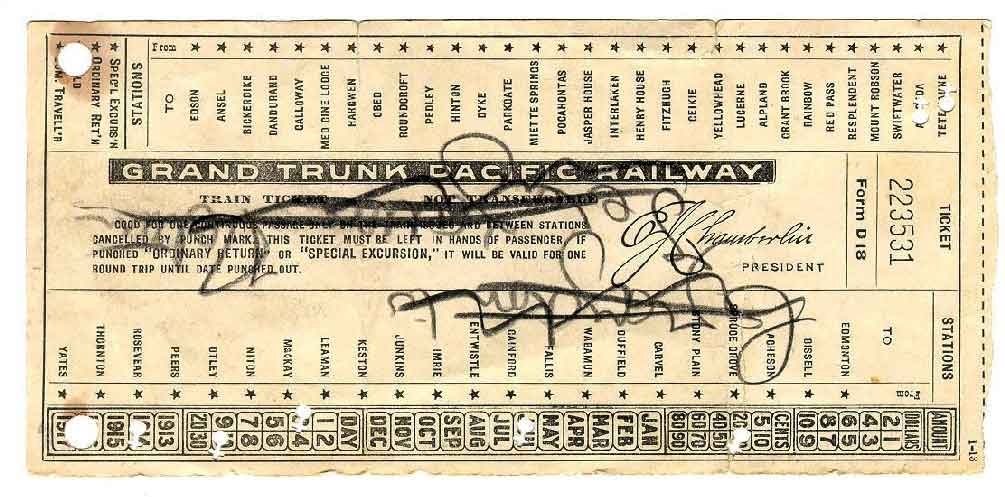 STATIONS
SPEC'L EXCURS'N
ORDINARY RET'N
TRAVELL'R
From
TO
EDSON
ANSEL
BICKERDIKE
DANDURAND
GALLOWAY
MEDICINE LODGE
HARGWEN
OBED
ROUNDCROFT
PEDLEY
HINTON
DYKE
PARKGATE
MIETTE SPRINGS
POCAHONTAS
JASPER HOUSE
INTERLAKEN
HENRY HOUSE
FITZHUGH
GEIKIE
YELLOWHEAD
LUCERNE
ALPLAND
GRANT BROOK
RAINBOW
RED PASS
RESPLENDENT
MOUNT ROBSON
SWIFTWATER
GRAND TRUNK PACIFIC RAILWAY
TRAIN TICKET NOT TRANSFERABLE
GOOD FOR ONE CONTINUOUS PASSAGE ONLY ON THE TRAIN ISSUED AND BETWEEN STATIONS
CANCELLED BY PUNCH MARKS. THIS TICKET MUST BE LEFT IN HANDS OF PASSENGER. IF
PUNCHED "ORDINARY RETURN" OR "SPECIAL EXCURSION," IT WILL BE VALID FOR ONE
ROUND TRIP UNTIL DATE PUNCHED OUT.
E J Chamberlin
PRESIDENT
FORM D 18
223531
TICKET
YATES
THORNTON
ROSEVEAR
PEERS
OTLEY
NITON
MACKAY
LEAMAN
KESTON
JUNKINS
IMRIE
ENTWISTLE
GAINFORD
FALLIS
WABAMUN
DUFFIELD
CARVEL
STONY PLAIN
SPRUCE GROVE
ACHESON
BISSELL
EDMONTON
TO
From
STATIONS
1915
1913
20 30
7 8
5 6
1 2
DAY
DEC
NOV
OCT
SEP
AUG
JUL
MAY
APR
MAR
FEB
JAN
80 90
60 70
40 50
5 10
CENTS
10 9
8 7
6 5
4 3
2 1
DOLLARS
AMOUNT
1-13